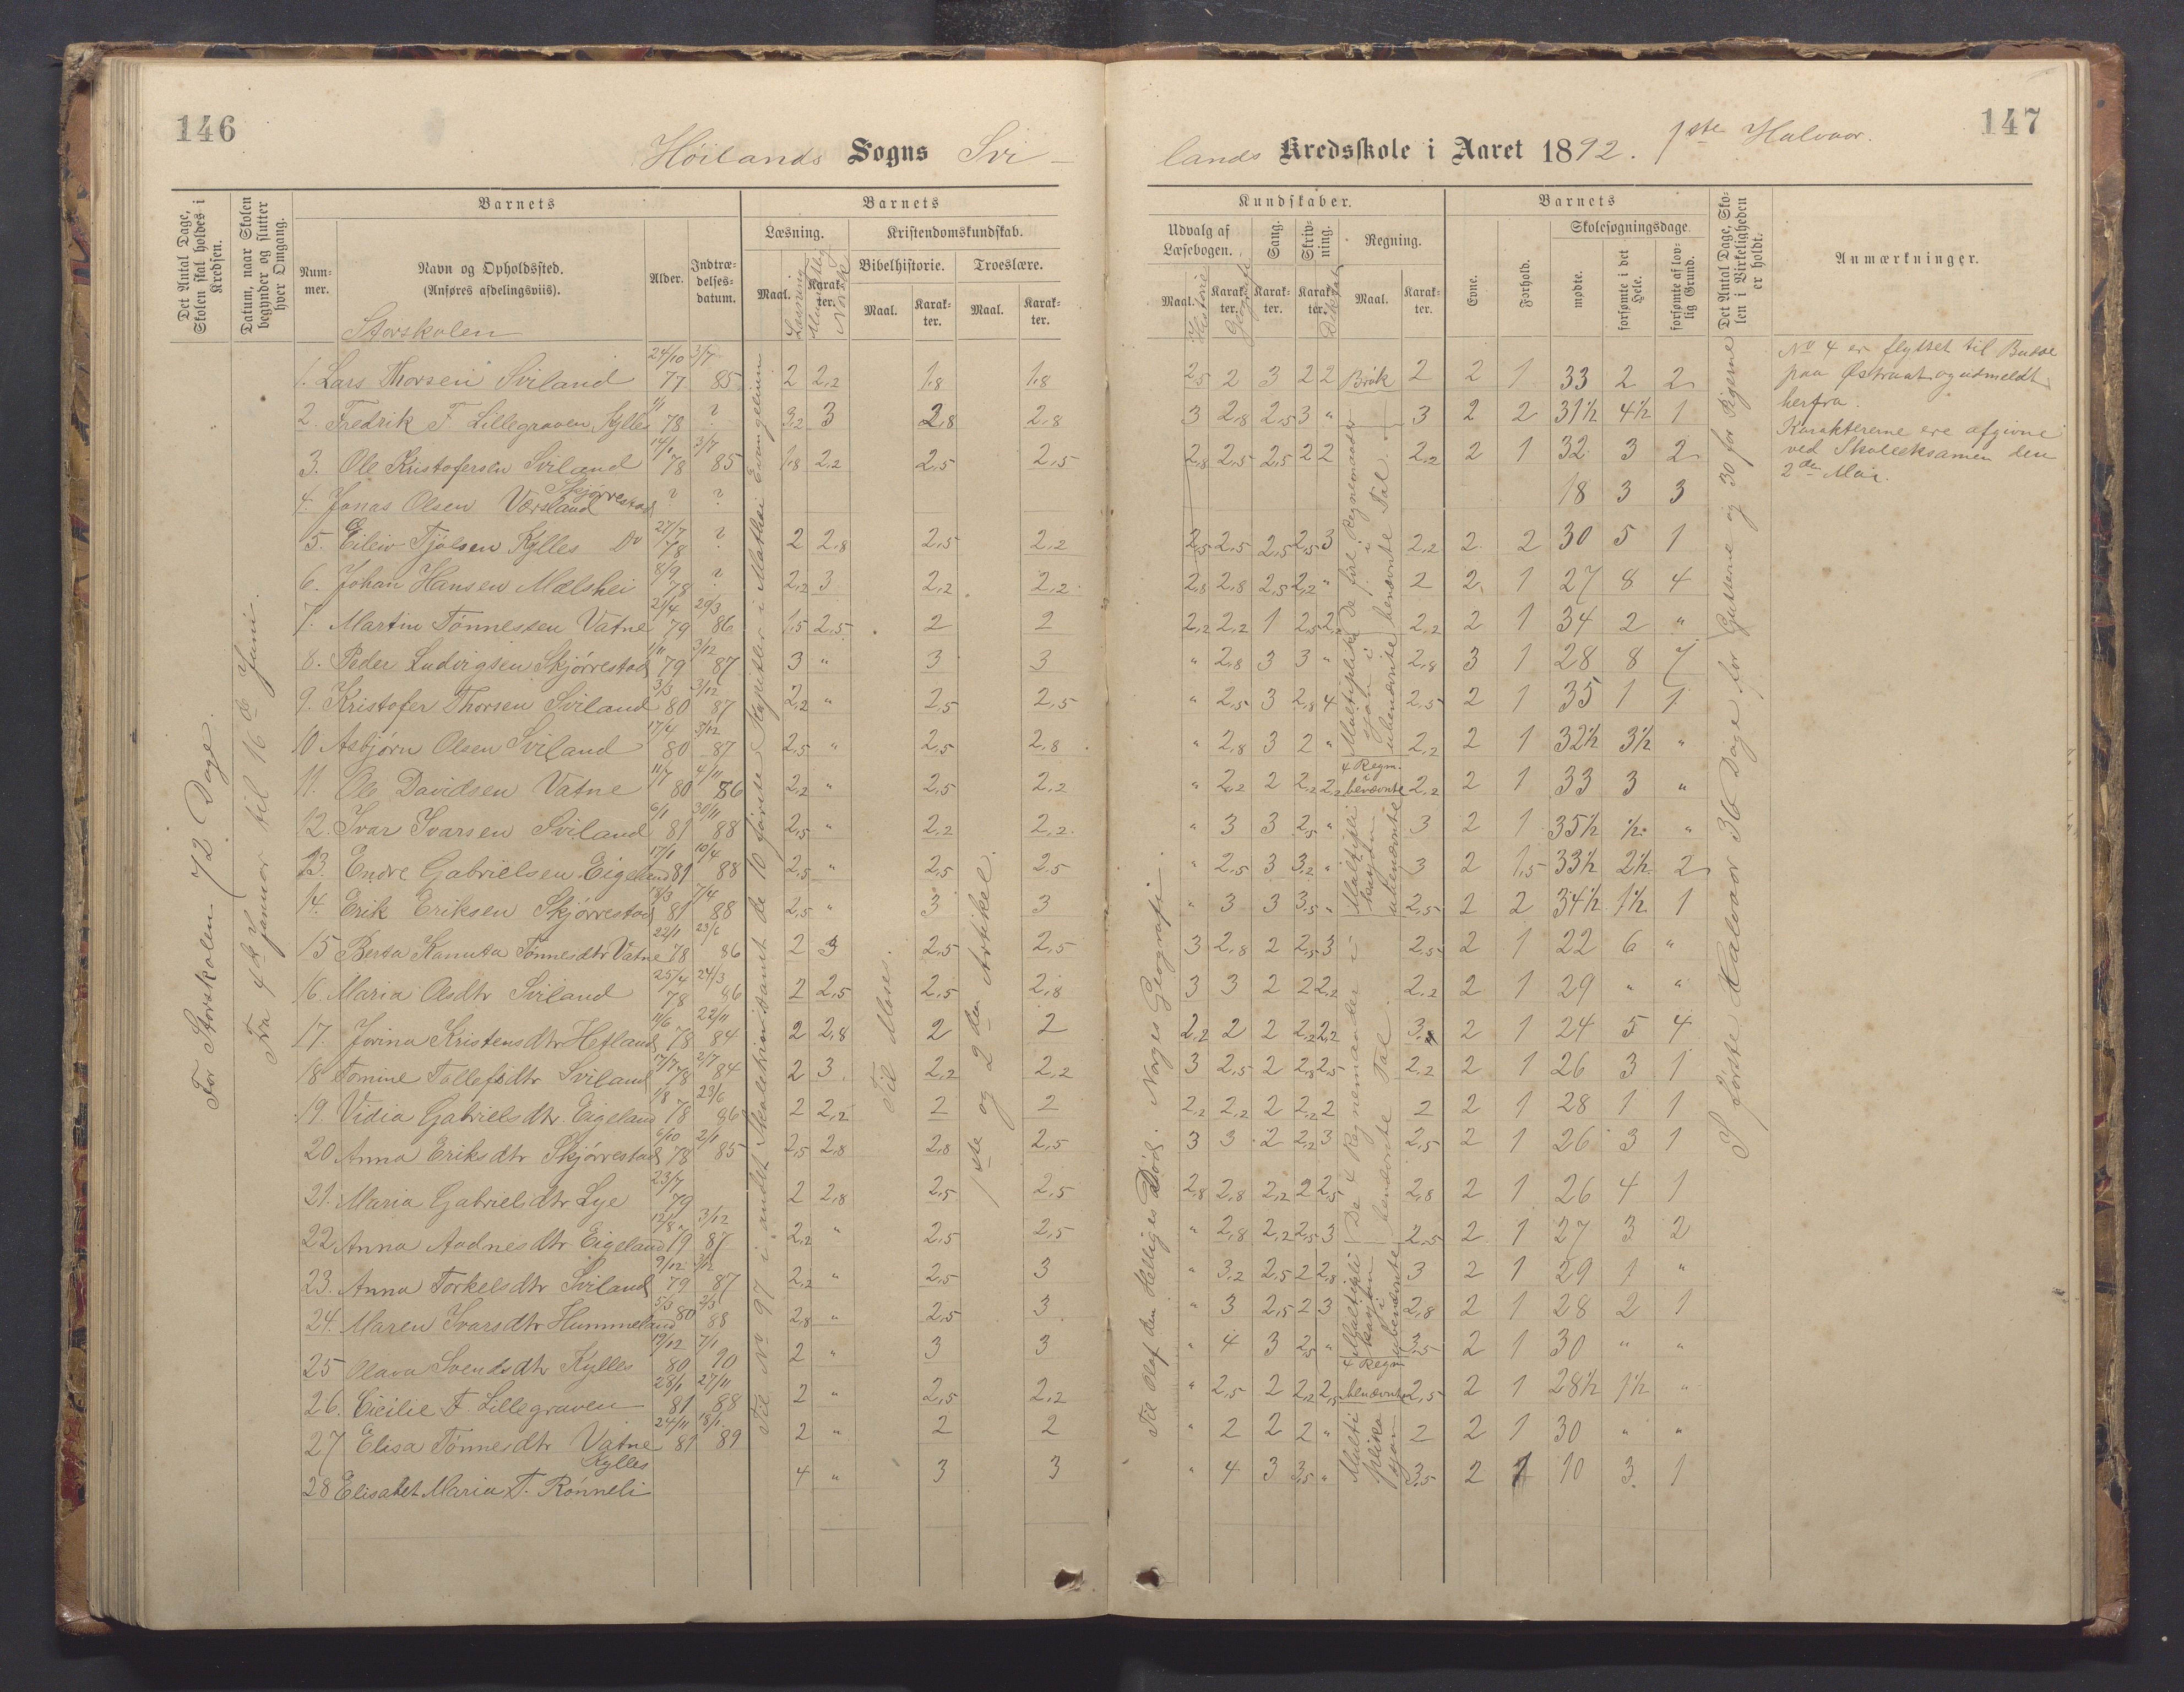 146
Høilands Sogns Svi-
Det Antal Dage, Skolen skal holdes i Kredsen.
Datum, naar Skolen begynder og slutter hver Omgang.
Barnets
Barnets
Num-mer.
Navn og Opholdssted.
(Anføres afdelingsviis).
Alder.
Indtræ-delses-datum.
Læsning.
Kristendomskundskab.
Maal.
Karak-ter.
Læsning
Mundtlig Norsk
Bibelhistorie.
Troeslære.
Maal.
Karak-ter.
Maal.
Karak-ter.
Storskolen
For Storskolen 72 Dage.
Fra 4de Januar til 16de Juni.
1. Lars Thorsen Sviland 24/10 77 3/7 85 2 2,2 1,8 1,8
2. Fredrik F. Lillegraven, Kylles 78 ? 3,2 3 2,8 2,8
3. Ole Kristofersen Sviland 14/1 78 3/7 85 1,8 2,2 2,5 2,5
4. Jonas Olsen Vorsland Skjørrestad ? ?
5. Eilev Tjølsen Kylles Do 27/7 78 ? 2 2,8 2,5 2,2
6. Johan Hansen Mælshei 8/9 78 ? 2,2 3 2,2 2,2
7. Martin Tønnessen Vatne 21/4 79 29/3 86 1,5 2,5 2 2
8. Peder Ludvigsen Skjørrestad 1/11 79 3/12 87 3 " 3 3
9. Kristofer Thorsen Sviland 3/3 80 3/12 87 2,2 " 2,5 2,5
10 Asbjørn Olsen Sviland 17/4 80 3/12 87 2,5 " 2,5 2,8
11. Ole Davidsen Vatne 11/7 80 4/11 86 2,2 " 2,5 2,2
12. Ivar Ivarsen Sviland 6/1 81 30/11 88 2,5 " 2,2 2,2
13. Endre Gabrielsen Eigeland 17/1 81 10/4 88 2,5 " 2,5 2,5
14. Erik Eriksen Skjørrestad 18/3 81 7/4 88 2,5 " 3 3
15 Berta Kanuta Tønnesdtr Vatne 22/1 78 23/6 86 2 3 2,5 2,5
16. Maria Olsdtr Sviland 25/4 78 24/3 86 2 2,5 2,5 2,8
17. Jorina Kristensdtr Hetland 11/6 78 22/11 84 2 2,8 2 2
18 Tomine Tollefsdtr Sviland 17/7 78 2/7 84 2 3 2,2 2,2
19. Vidia Gabrielsdtr Eigeland 1/8 78 23/6 86 2 2,2 2 2
20 Anna Eriksdtr Skjørrestad 6/10 78 2/1 85 2,5 2,8 2,8 2,5
21. Maria Gabrielsdtr Lye 23/7 79 2 2,8 2,5 2,5
22 Anna Aadnesdtr Eigeland 12/8 79 3/12 87 2,2 " 2,5 2,5
23. Anna Torkelsdtr Sviland 9/12 79 3/12 87 2,2 " 2,5 3
24. Maren Ivarsdtr Hummeland 5/3 80 2/3 88 2,8 " 2,5 3
25 Olava Svendsdtr Kylles 19/12 80 7/1 90 2 " 3 3
26. Cicilie F. Lillegraven 28/1 81 27/11 88 2 " 2,5 2,2
27 Elisa Tønnesdtr Vatne 24/11 81 18/1 89 2 " 2 2
28 Elisabet Maria T. Rønneli Kylles 4 " 3 3
Til No 97 i andet Skoletrin samt de 10 første Kapitler i Mathæi Evangelium
Til Moses.
1ste og 2den Artikel.
147
lands Kredsskole i Aaret 1892. 1ste Halvaar.
Kundskaber.
Barnets
Udvalg af Læsebogen.
Sang.
Skriv-ning.
Regning.
Maal.
Historie
Karak-ter.
Geografi
Karak-ter.
Karak-ter.
Diktat
Maal.
Karak-ter.
Evne.
Forhold.
Skolesøgningsdage
mødte.
forsømte i det Hele.
forsømte af lov-lig Grund.
Det Antal Dage, Sko-len i Virkeligheden er holdt.
Anmærkninger.
Til Olaf den Helliges Død. Norges Geografi.
2,5 2 3 2 2 Brøk 2 2 1 33 2 2
3 2,8 2,5 3 " 3 2 2 31½ 4½ 1
2,8 2,5 2,5 2 2 2,2 2 1 32 3 2
18 3 3
2,5 2,5 2,5 2,5 3 2,2 2 2 30 5 1
2,8 2,8 2,5 2,2 " 2 2 1 27 8 4
2,2 2,2 1 2,5 2,2 2,2 2 1 34 2 "
" 2,8 3 3 " 2,8 3 1 28 8 7
" 2,5 3 2,8 4 2,5 2 1 35 1 1
" 2,8 3 2 " 2,2 2 1 32½ 3½ "
" 2,2 2 2,2 2,2 4 Regn. i benævnte 2,2 2 1 33 3 "
" 3 3 2,5 " 3 2 1 35½ ½ "
" 2,5 3 3,2 " 3 2 1,5 33½ 2½ 2
" 3 3 3,5 " 2,5 2 2 34½ 1½ 1
3 2,8 2 2,5 3 2,5 2 1 22 6 "
3 3 2 2 2,2 2,2 2 1 29 " "
2,2 2 2 2,2 2,2 2 1 24 5 4
3 2,5 2 2,5 2,5 2,2 2 1 26 3 1
2,2 2,2 2 2,2 2 2 2 1 28 1 1
3 3 2 2,2 3 2,5 2 1 26 3 1
2,8 2,8 2,2 2 2,5 2,8 2 1 26 4 1
" 2,8 2,2 2,5 3 2,5 2 1 27 3 2
" 3,2 2,5 2 2,8 3 2 1 29 1 "
" 3 2,5 2 3 2,8 2 1 28 2 1
" 4 3 2,5 " 3,5 2 1 30 " "
" 2,5 2 2,2 2,5 4 Regn benævnte 2,5 2 1 28½ 1½ "
" 2 2 2 " 2 2 1 30 " "
" 4 3 3,5 " 3,5 2 1 10 3 1
De fire Regnemaader i benævnte Tal.
Multiplikasjon i ubenævnte
Multiplikasjon ubenævnte
De 4 Regnemaader i benævnte Tal.
Multiplikasjon i ubenævnte
Multiplikasjon
I første Halvaar 36 Dage for Gutterne og 30 for Pigerne
No 4 er flyttet til
paa Østraat og udmeldt
herfra.
Karaktererne ere afgivne
ved Skoleeksamen den
2den Mai.